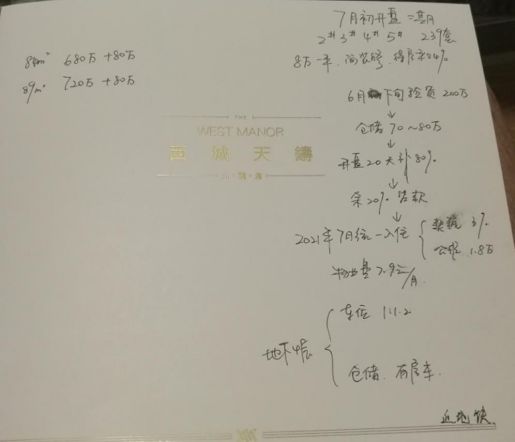 7月初开盘 二期
2# 3# 4# 5# 239套
8万一平、简装修、得房率74%
84m² 680万+80万
89m² 720万+80万
6月下旬验资 200万
↓
仓储70~80万
↓
开盘20天补80%
↓
余20% 贷款
↓
2021年7月统一入住 { 契税 3%
公维 1.8万
THE
WEST MANOR
西城天鑄
物业费7.9元/月
地下4层 { 车位 1:1.2
仓储、有房本
近地铁